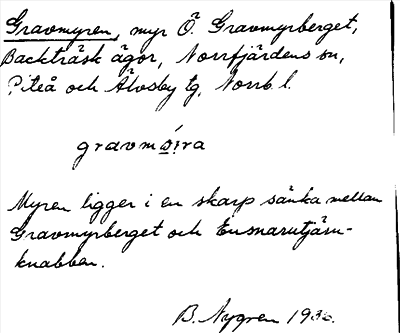 Gravmyren, myr Ö. Gravmyrberget,
Backträsk ägor, Norrfjärdens sn,
Piteå och Älvsby tg, Norrb. l.
gravmöira
Myren ligger i en skarp sänka mellan
Gravmyrberget och Ensmarutjärn-
knabben.
B. Nygren 1936.